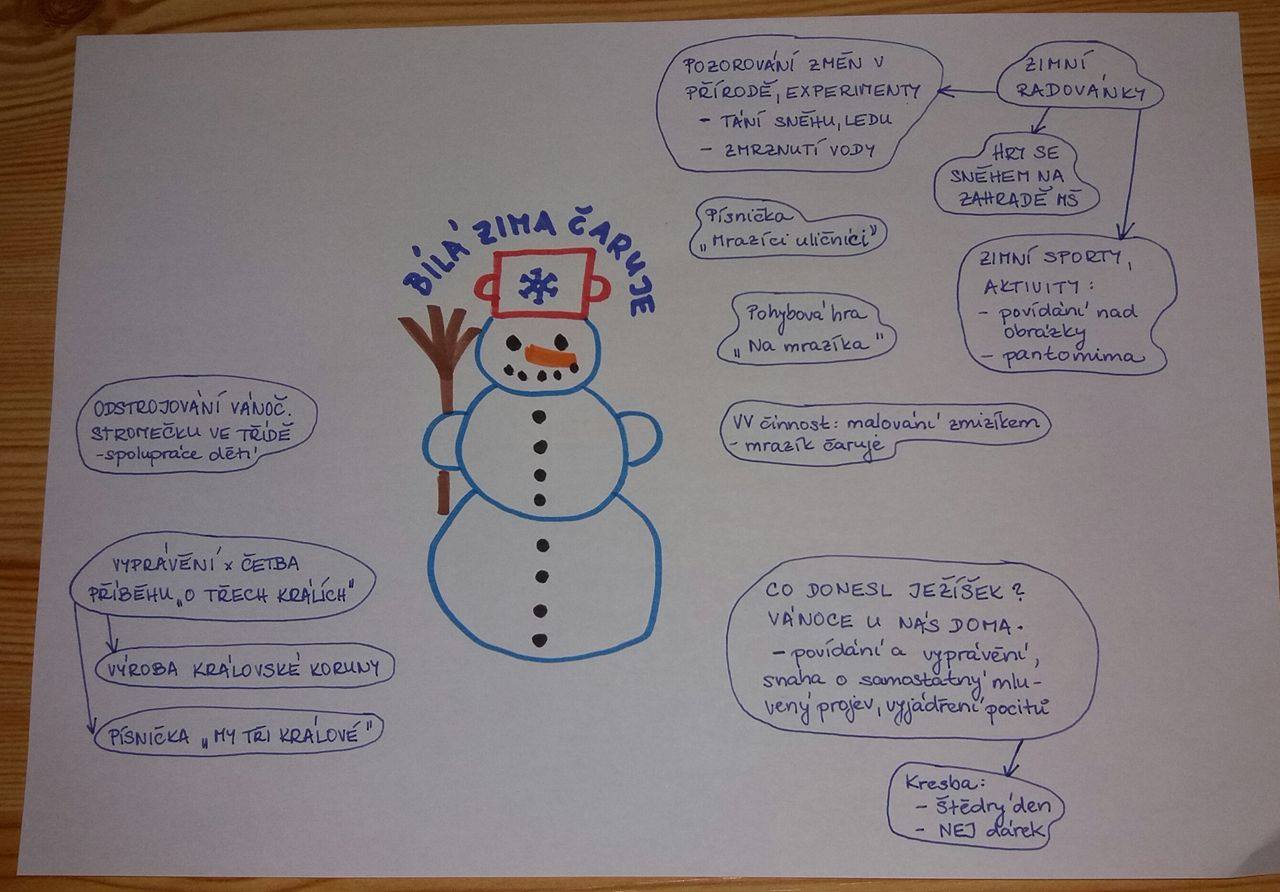 BÍLÁ ZIMA ČARUJE
ODSTROJOVÁNÍ VÁNOČ.
STROMEČKU VE TŘÍDĚ
-spolupráce dětí
VYPRÁVĚNÍ x ČETBA
PŘÍBĚHU „O TŘECH KRÁLÍCH"
VÝROBA KRÁLOVSKÉ KORUNY
PÍSNIČKA „MY TŘI KRÁLOVÉ"
POZOROVÁNÍ ZMĚN V
PŘÍRODĚ, EXPERIMENTY
- TÁNÍ SNĚHU, LEDU
- ZMRZNUTÍ VODY
ZIMNÍ
RADOVÁNKY
HRY SE
SNĚHEM NA
ZAHRADĚ MŠ
ZIMNÍ SPORTY,
AKTIVITY:
- povídání nad
obrázky
- pantomima
Písnička
„Mrazíci uličníci"
Pohybová hra
„Na mrazíka"
VV činnost: malování zmizíkem
- mrazík čaruje
CO DONESL JEŽÍŠEK?
VÁNOCE U NÁS DOMA.
- povídání a vyprávění,
snaha o samostatný mlu-
vený projev, vyjádření pocitů
Kresba:
- Štědrý den
- NEJ dárek